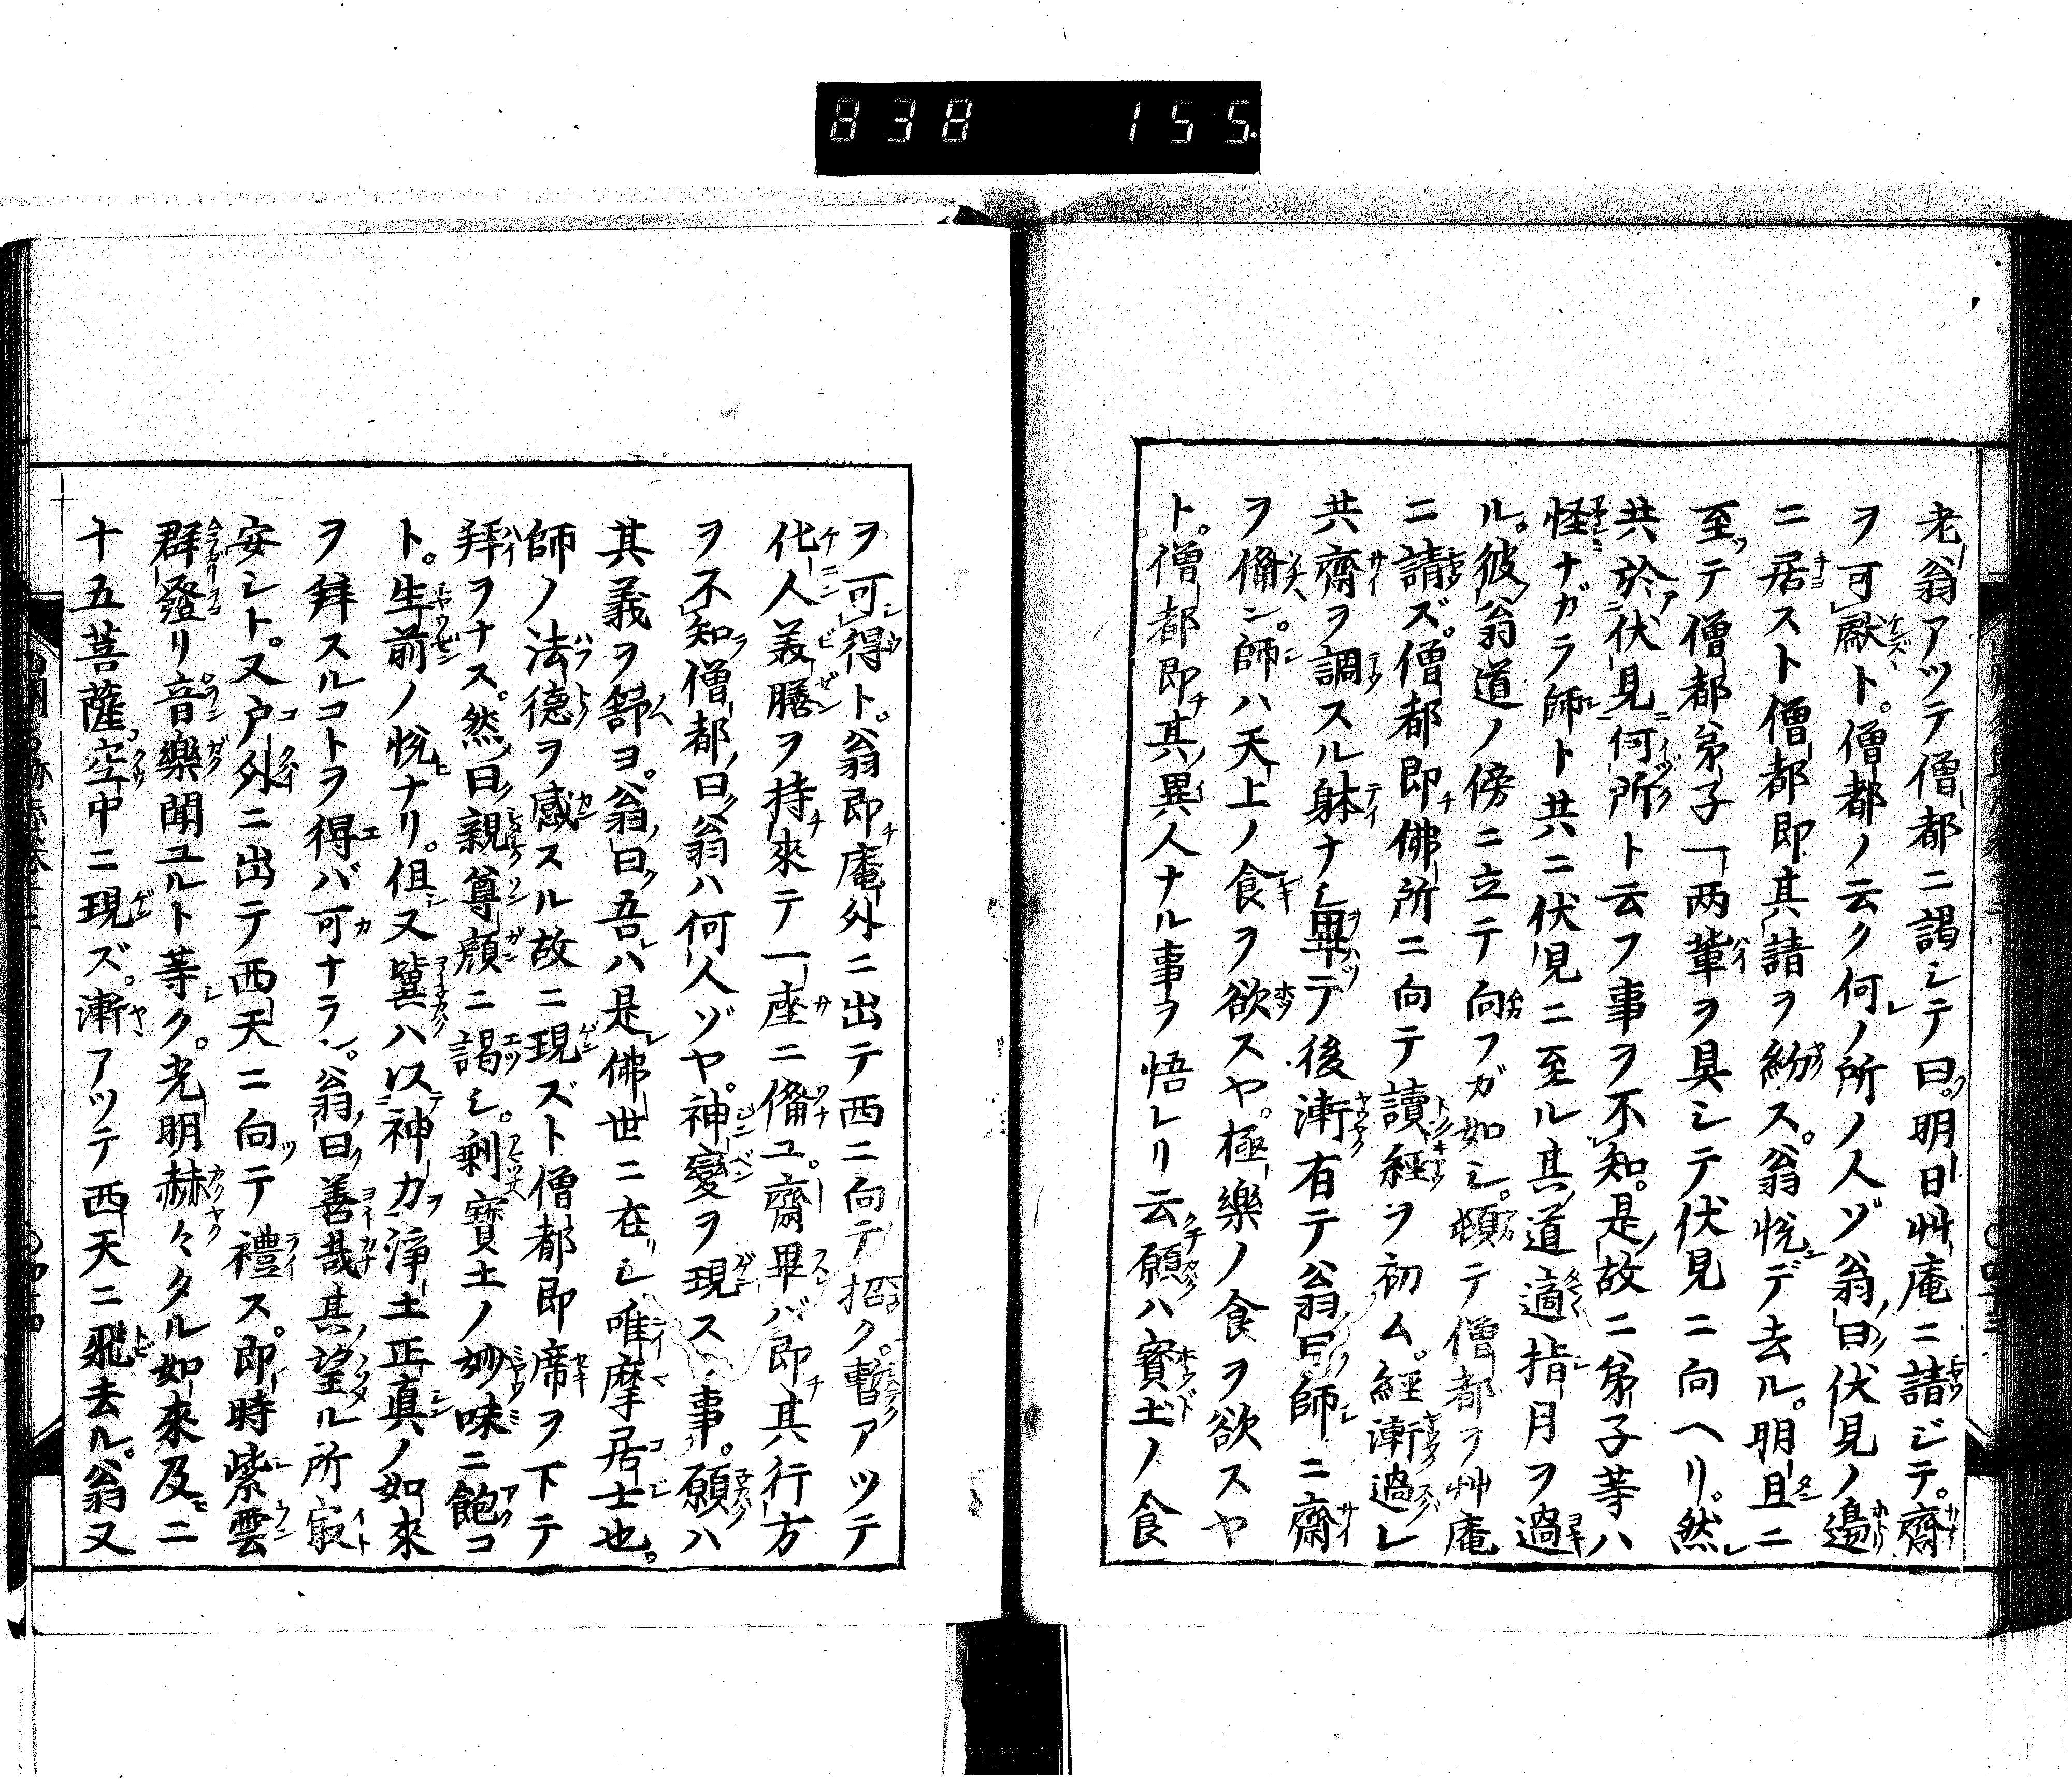 838 155
老翁アツテ僧都ニ謁シテ曰明日艸庵ニ請ジテ齋
ヲ可獻ト僧都ノ云ク何ノ所ノ人ゾ翁曰伏見ノ邊
ニ居スト僧都即其請ヲ納ス翁悦デ去ル明旦ニ
至テ僧都弟子一両輩ヲ具シテ伏見ニ向ヘリ然
共於伏見何所ト云フ事ヲ不知是故ニ弟子等ハ
怪ナガラ師ト共ニ伏見ニ至ル其道適指月ヲ過
ル彼翁道ノ傍ニ立テ向フガ如シ頓テ僧都ヲ艸庵
ニ請ズ僧都即佛所ニ向テ讀經ヲ初ム經漸過レ
共齋ヲ調スル躰ナシ畢テ後漸有テ翁曰師ニ齋
ヲ備ン師ハ天上ノ食ヲ欲スヤ極樂ノ食ヲ欲スヤ
ト僧都即其異人ナル事ヲ悟レリ云願ハ寳土ノ食
ヲ可得ト翁即庵外ニ出テ西ニ向テ招ク暫アツテ
化人美膳ヲ持來テ一座ニ備ユ齋畢バ即其行方
ヲ不知僧都曰翁ハ何人ゾヤ神變ヲ現ス事願ハ
其義ヲ語ヨ翁曰吾ハ是佛世ニ在シ唯摩居士也
師ノ法德ヲ感スル故ニ現ズト僧都即席ヲ下テ
拜ヲナス然曰親尊顔ニ謁シ剰寳土ノ妙味ニ飽コ
ト生前ノ悦ナリ但又冀ハ以神力淨土正真ノ如來
ヲ拜スルコトヲ得バ可ナラン翁曰善哉其望ル所寂
安シト又戸外ニ出テ西天ニ向テ禮ス即時紫雲
群發リ音樂聞ユルト等ク光明赫々タル如來及ニ
十五菩薩空中ニ現ズ漸アツテ西天ニ飛去ル翁又